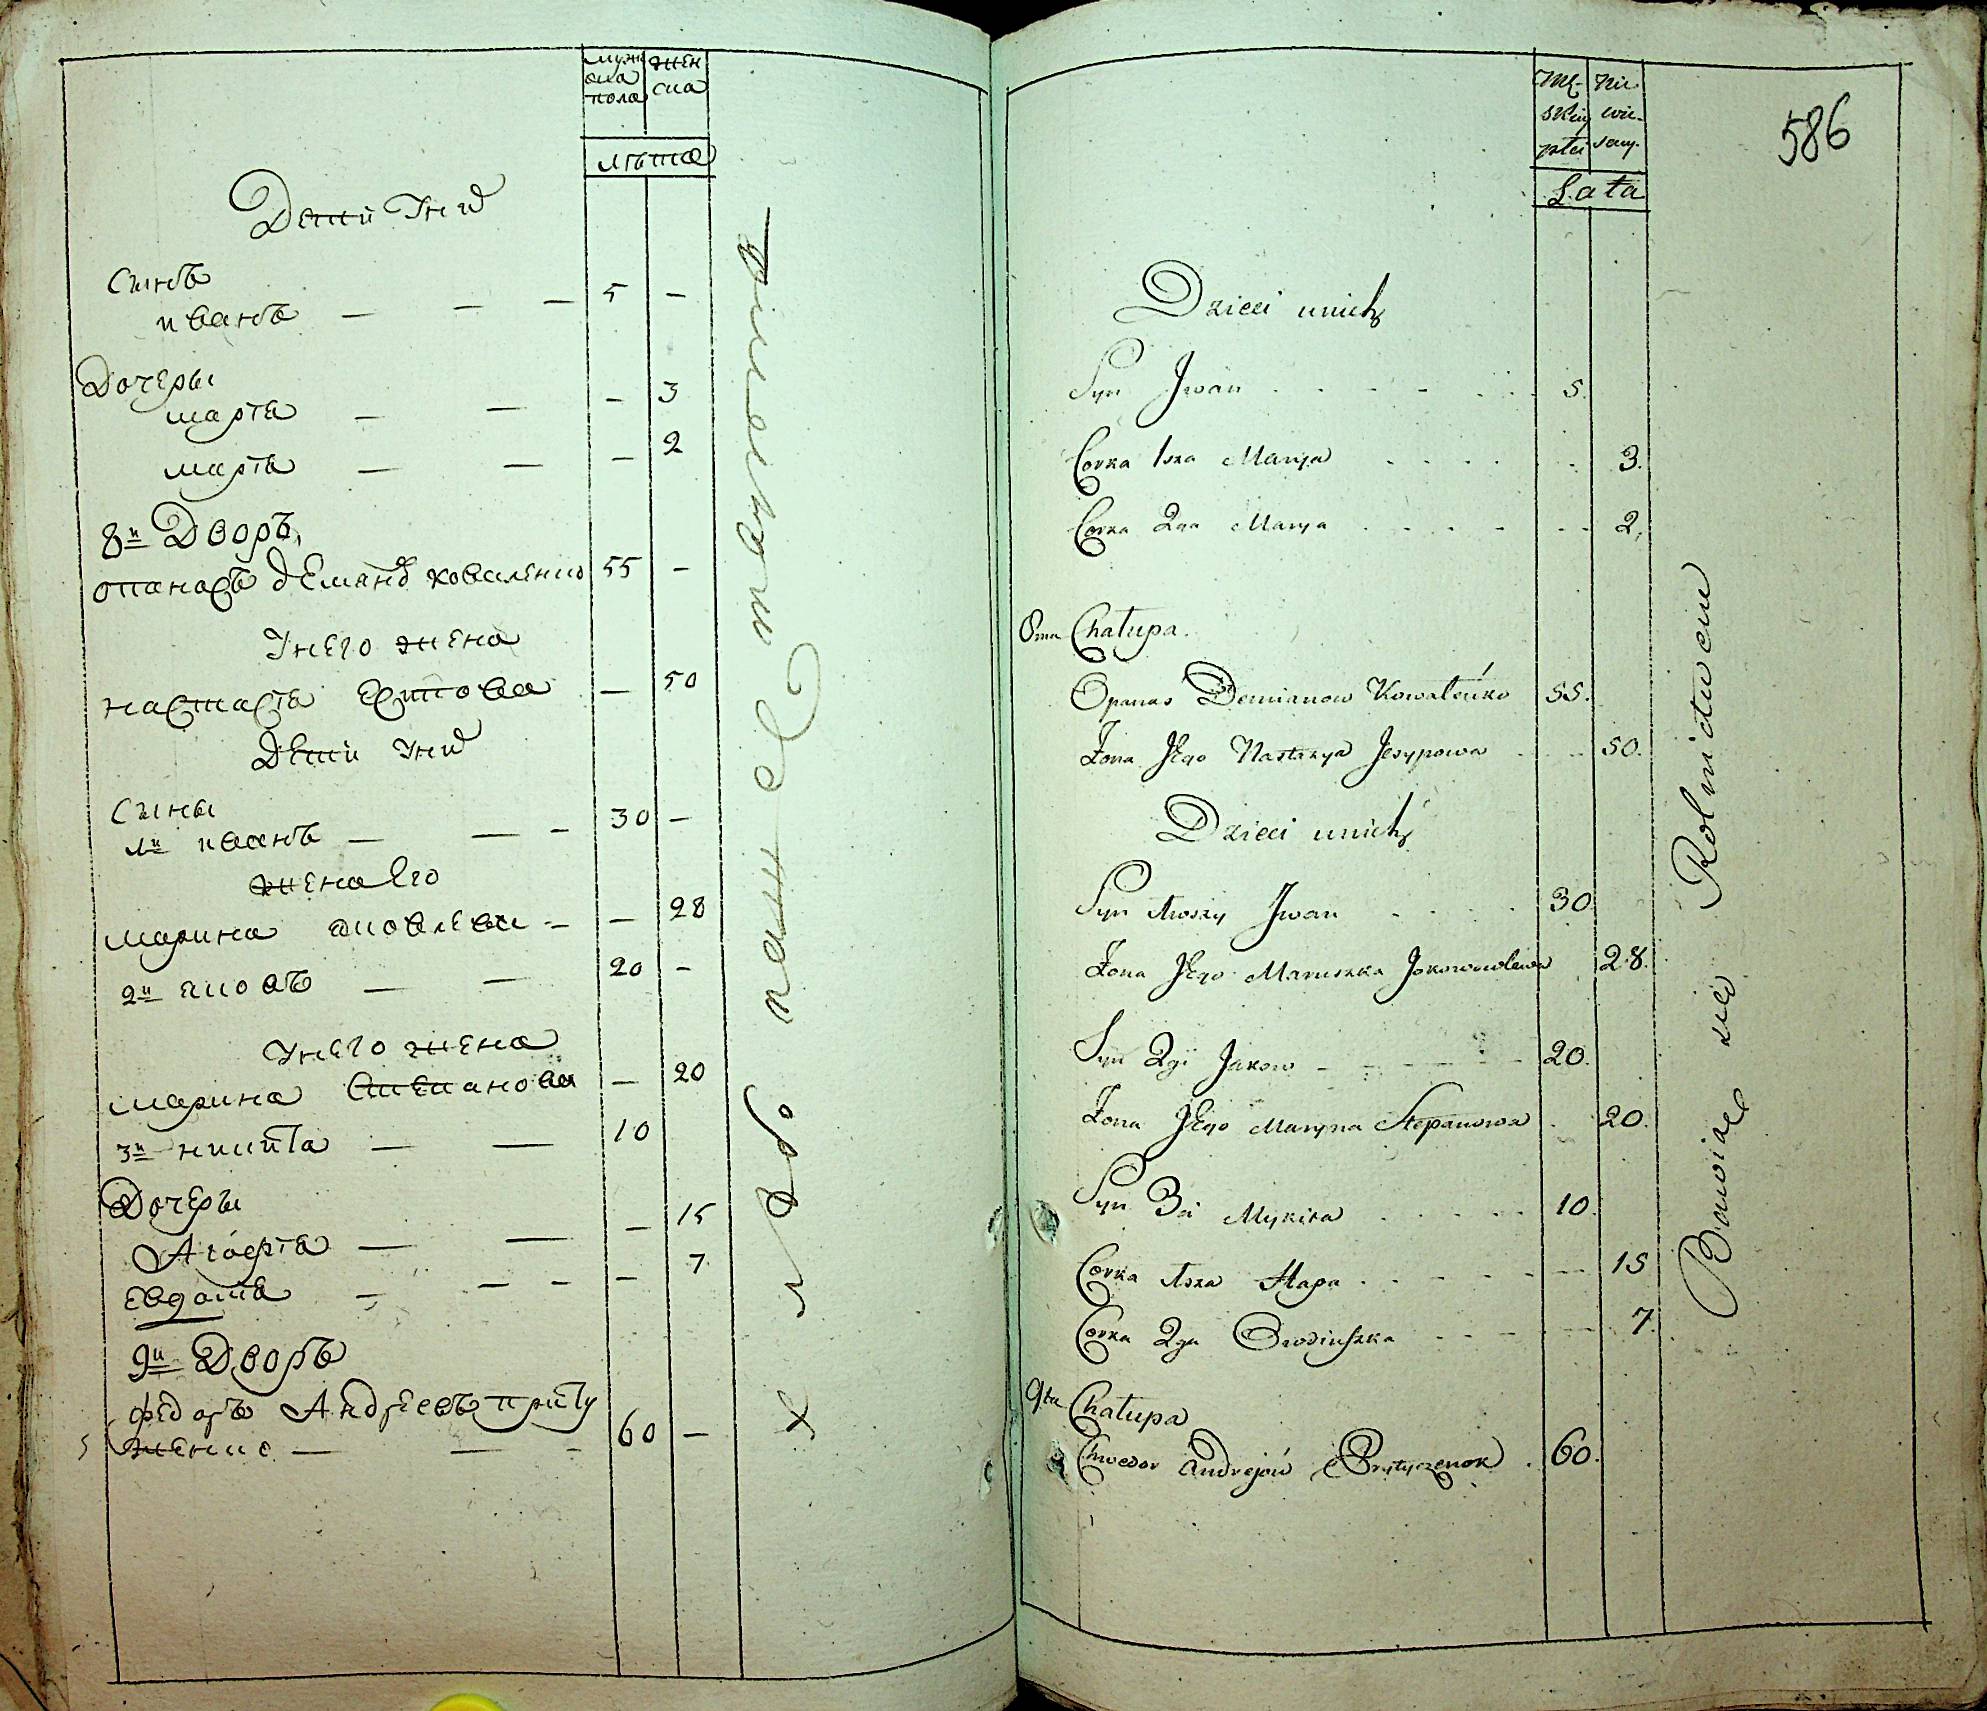 мужеска пола
женска
лѣта
Дети У них
Сынъ
иванъ — — — 5 —
Дочеры
марія — — — 3
марія — — — 2
8й Дворъ
опанасъ демяновъ коваленко 55 —
У него жена
настасія Есипова — 50
Дети У них
Сыны
1й иванъ — — — 30 —
жена Его
марина яковлева — — 28
2й яковъ — — 20 —
У него жена
марина Степанова — 20
3й никита — — 10
Дочеры
Агафія — — — 15
Евдокія — — — — 7
9й Дворъ
федоръ Андреевъ приту
женко — — — 60 —
хлебо пашествомъ
586
Męskiej płci
Niewieściey
Lata
Dzieci unich
Syn Jwan 5.
Corka 1sza Marya 3.
Corka 2ga Marya 2.
8ma Chałupa.
Opanas Demianow Kowalenko 55.
Żona Jego Nastazya Jesypowa 50.
Dzieci unich
Syn 1wszy Jwan 30
Żona Jego Maruszka Jakowowlewa 28.
Syn 2gi Jakow 20.
Żona Jego Maryna Stepanowa 20.
Syn 3ci Mykita 10.
Corka 1sza Hapa 15
Corka 2ga Owdiuszka 7.
9ta Chałupa
Chwedor Andrejow Prytyczenok 60.
Bawiąc się Rolnictwem